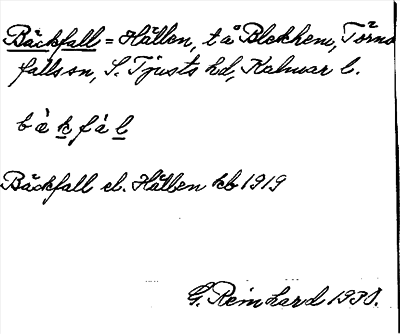 Bäckfall = Hällen, t å Blekhem, Törns
fallssn, S. Tjusts hd, Kalmar l.
b ὲ k f á l
Bäckfall el. Hällen kb 1919
G. Reinhard 1930.